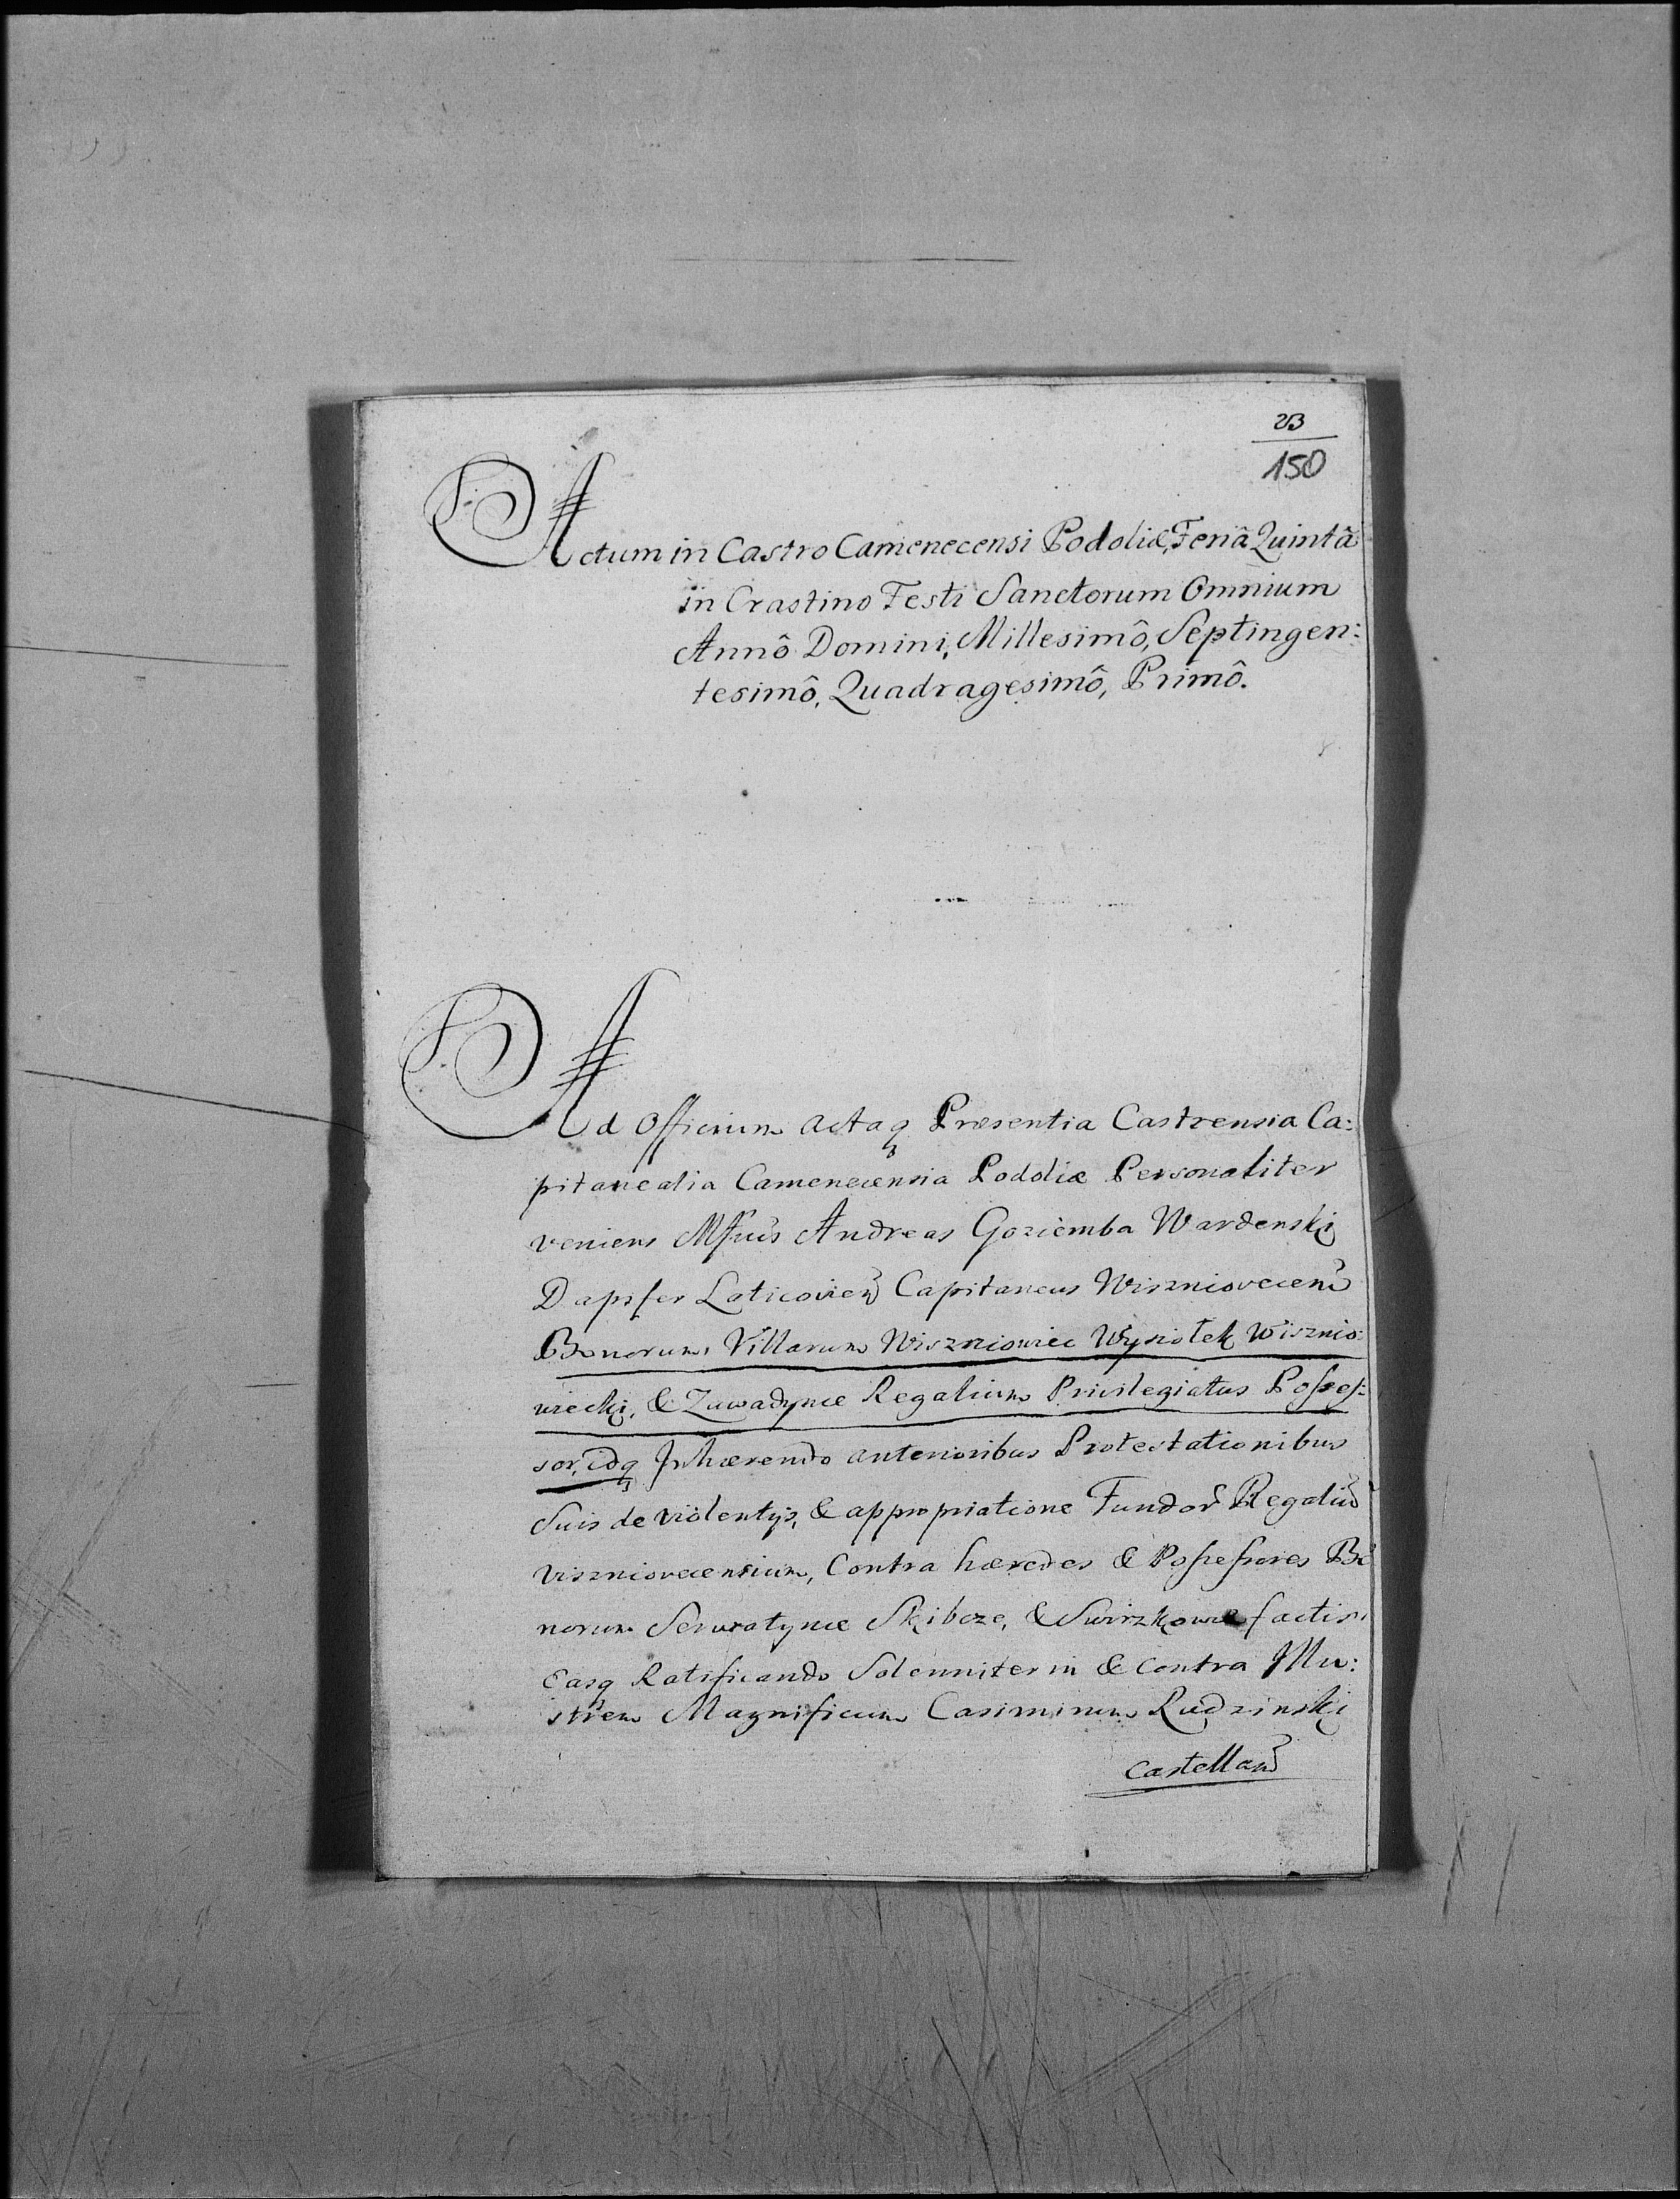 23
150
Actum in Castro Camenecensi Podoliæ, Feriâ Quintâ
in Crastino Festi Sanctorum Omnium
Annô Domini, Millesimô, Septingen:
tesimô, Quadragesimô, Primô.
Ad Officium Actaq Præsentia Castrensia Ca:
pitanealia Camenecensia Podoliæ Personaliter
veniens Mfcus Andreas Goziemba Wardenski
Dapifer Laticovien Capitaneus Wiszniovecen
Bonorum Villarum Wiszniowiec Wysiołek Wisznio:
wiecki, & Zawadynce Regalium Privilegiatus Posses:
sor, idq Inhærendo anterioribus Protestationibus
Suis de violentÿs, & appropriatione Fundor Regaliu
Viszniovecensium, Contra hæredes & Possessores Bo
norum Serwatynce Skibcze, & Swirzkowce factis,
Easq Ratificando Solenniter in & contra Illu:
strem Magnificum Casimirum Rudzinski
Castellan